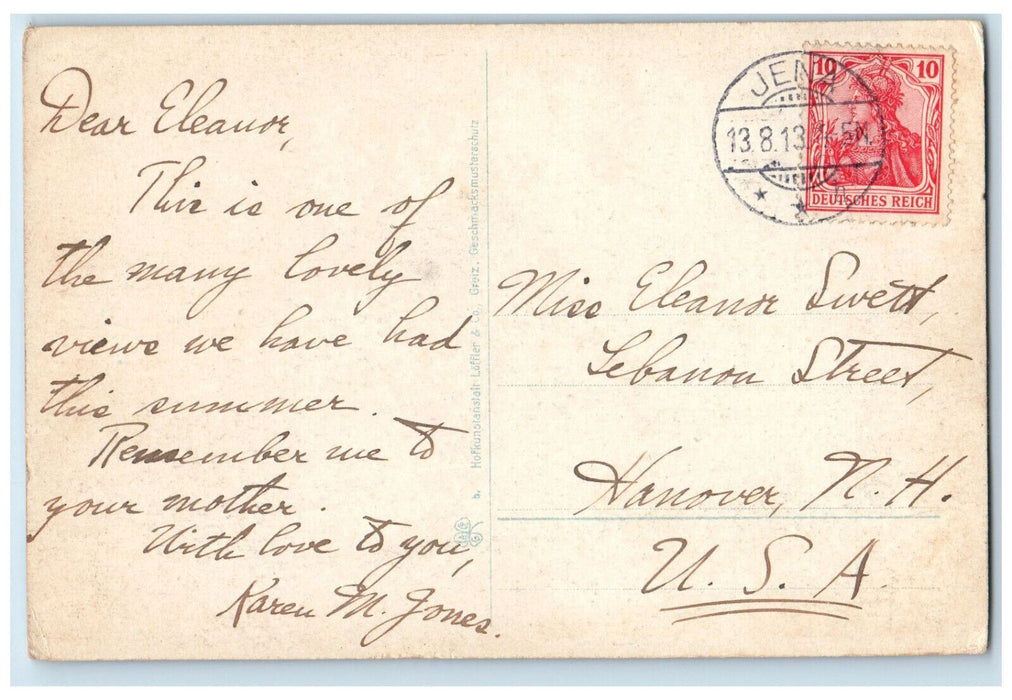 Dear Eleanor,
This is one of
the many lovely
views we have had
this summer.
Remember me to
your mother.
With love to you,
Karen M. Jones.
b. Hofkunstanstalt Löffler & Co. Greiz, Geschmacksmusterschutz
JENA
13.8.13. 4-5N.
10 10
DEUTSCHES REICH
Miss Eleanor Swett,
Lebanon Street,
Hanover, N. H.
U. S. A.